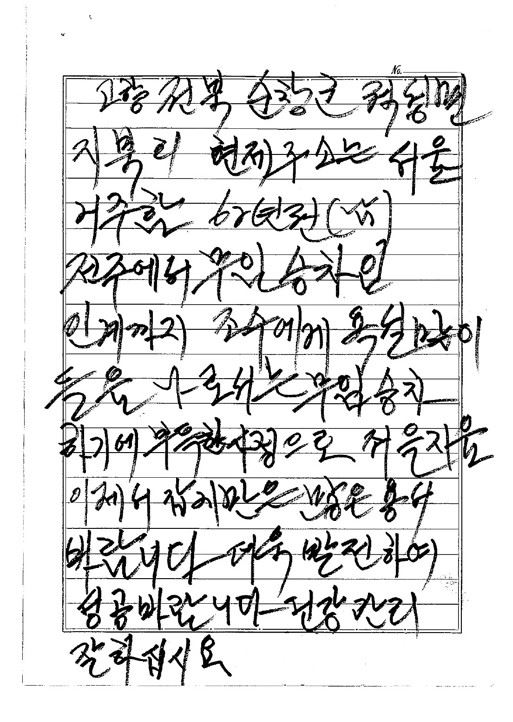 No.
고향 전북 순창군 적성면
지북리 현재주소는 서울
거주함 62년전(넘)
전주에서 무임승차인
인계까지 조수에게 욕설많이
들음 나로서는 무임승차
하기에 부득한사정으로 저을지음
이제서 잡지만은 많은 용서
바람니다 더욱 발전하여
성공바람니다 된장 간리
잘하십시요